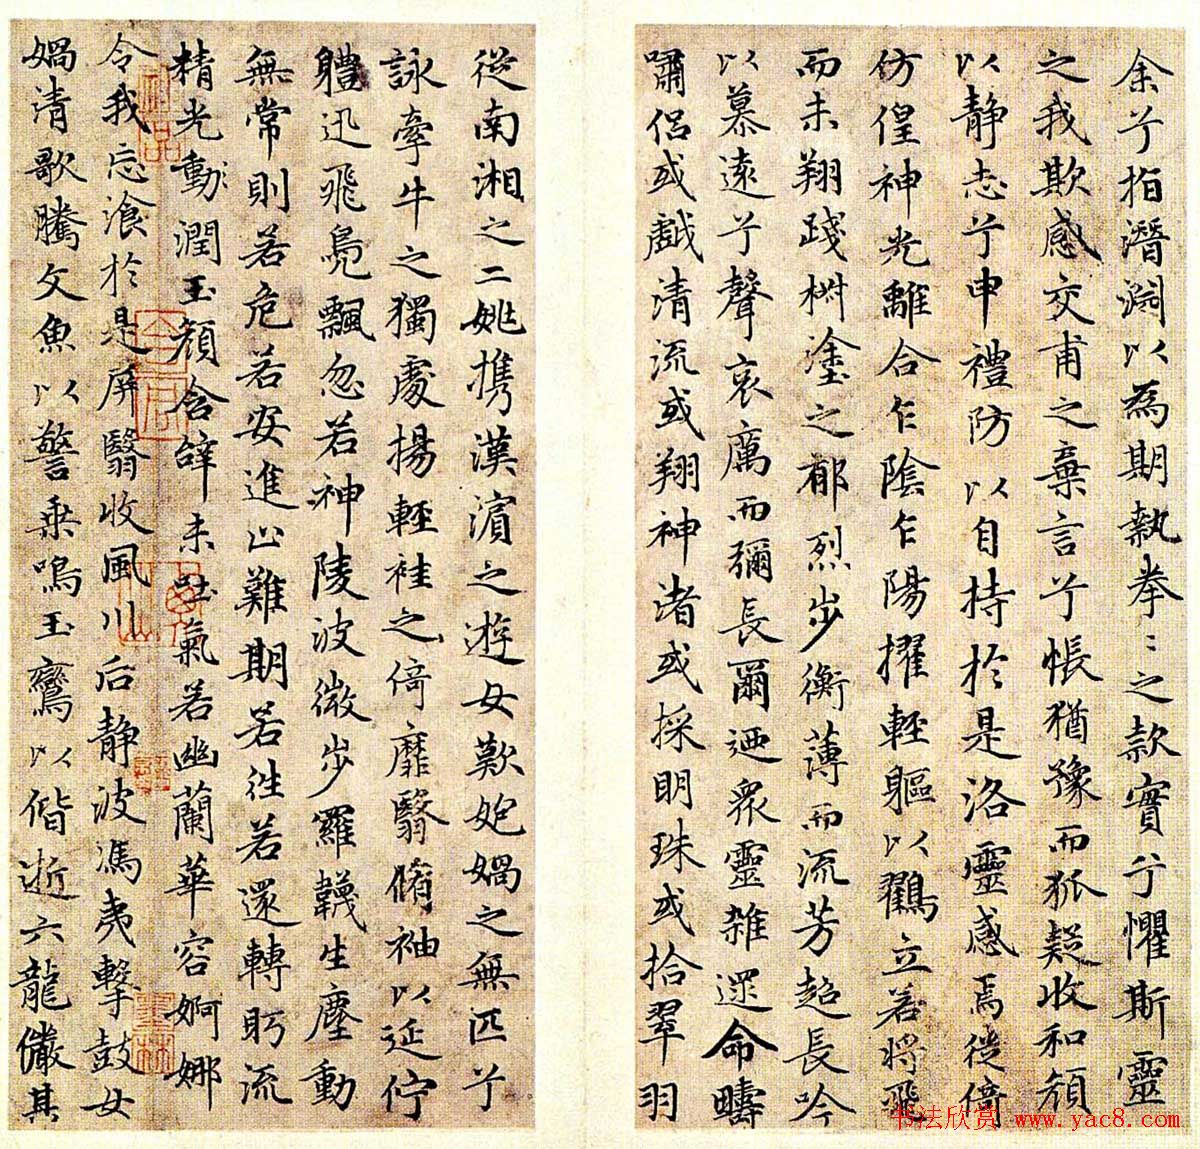 余兮指潛淵以為期執拳〻之款實兮懼斯靈
之我欺感交甫之棄言兮悵猶豫而狐疑收和顏
以静志兮申禮防以自持於是洛靈感焉徙倚
仿偟神光離合乍陰乍陽擢輕軀以鶴立若將飛
而未翔踐椒塗之郁烈步衡薄而流芳超長吟
以慕遠兮聲哀厲而彌長爾迺衆靈雜遝命疇
嘯侣或戲清流或翔神渚或採明珠或拾翠羽
從南湘之二姚攜漢濱之遊女歎炮媧之無匹兮
詠牽牛之獨處揚輕袿之倚靡翳脩袖以延佇
體迅飛鳧飄忽若神陵波微步羅韈生塵動
無常則若危若安進止難期若往若還轉眄流
精光動潤玉顏含辭未吐氣若幽蘭華容婀娜
令我忘飡於是屏翳收風川后静波馮夷擊鼓女
媧清歌騰文魚以警乘鳴玉鸞以偕逝六龍儼其
书法欣赏 www.yac8.com